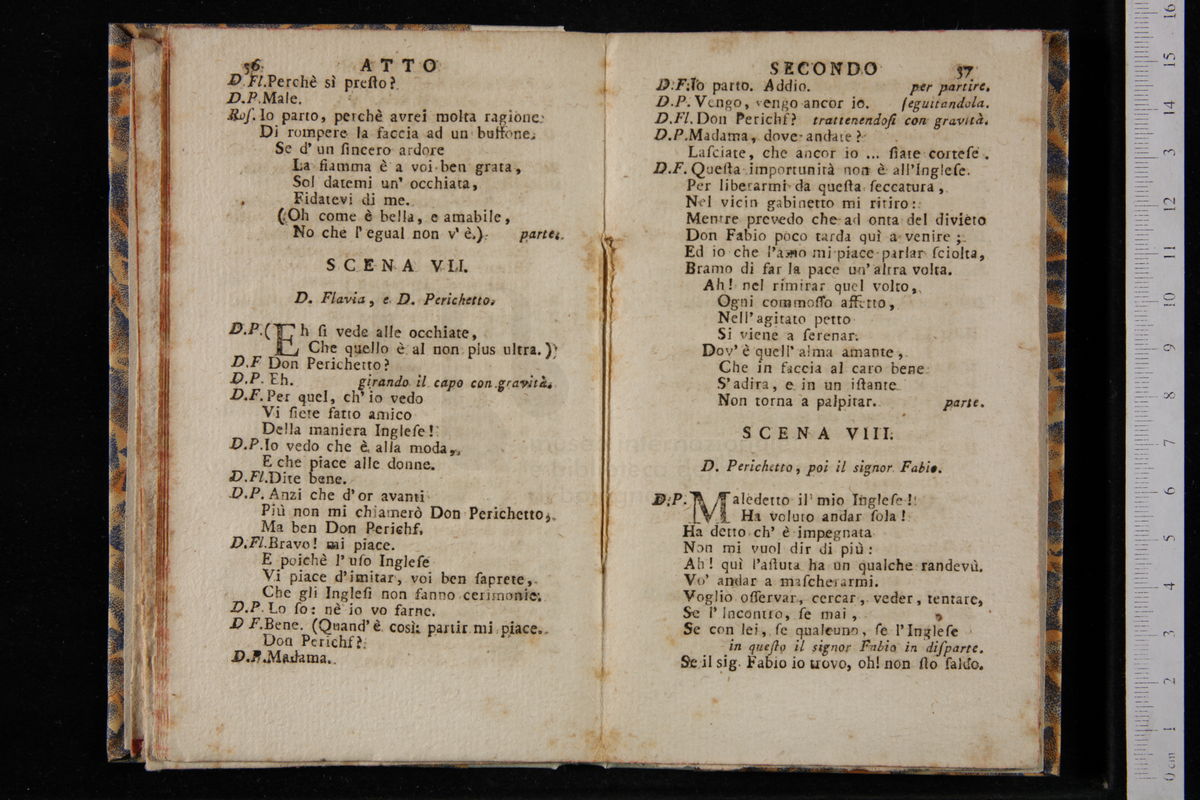 36 ATTO
D. Fl. Perchè sì preſto?
D. P. Male.
Roſ. Io parto, perchè avrei molta ragione
Di rompere la faccia ad un buffone.
Se d' un ſincero ardore
La fiamma è a voi ben grata,
Sol datemi un' occhiata,
Fidatevi di me.
(Oh come è bella, e amabile,
No che l' egual non v' è.) parte.
SCENA VII.
D. Flavia, e D. Perichetto.
D.P. (Eh ſi vede alle occhiate,
Che quello è al non plus ultra.)
D.F Don Perichetto?
D.P. Eh. girando il capo con gravità.
D.F. Per quel, ch' io vedo
Vi ſiete fatto amico
Della maniera Ingleſe!
D.P. Io vedo che è alla moda,
E che piace alle donne.
D.Fl. Dite bene.
D.P. Anzi che d' or avanti
Più non mi chiamerò Don Perichetto,
Ma ben Don Perichf.
D.Fl. Bravo! mi piace.
E poichè l' uſo Ingleſe
Vi piace d'imitar, voi ben ſaprete,
Che gli Ingleſi non fanno cerimonie.
D.P. Lo ſo: nè io vo farne.
D F. Bene. (Quand' è così: partir mi piace.
Don Perichf?
D.P. Madama.
SECONDO 37
D.F. Io parto. Addio. per partire.
D.P. Vengo, vengo ancor io. ſeguitandola.
D.Fl. Don Perichf? trattenendoſi con gravità.
D.P. Madama, dove andate?
Laſciate, che ancor io ... ſiate corteſe.
D.F. Queſta importunità non è all'Ingleſe.
Per liberarmi da queſta ſeccatura,
Nel vicin gabinetto mi ritiro:
Mentre prevedo che ad onta del divieto
Don Fabio poco tarda quì a venire;
Ed io che l'amo mi piace parlar ſciolta,
Bramo di far la pace un' altra volta.
Ah! nel rimirar quel volto,
Ogni commoſſo affetto,
Nell' agitato petto
Si viene a ſerenar.
Dov' è quell' alma amante,
Che in faccia al caro bene
S' adira, e in un iſtante
Non torna a palpitar. parte.
SCENA VIII.
D. Perichetto, poi il signor Fabio.
D.P. Maledetto il mio Ingleſe!
Ha voluto andar ſola!
Ha detto ch' è impegnata
Non mi vuol dir di più:
Ah! quì l'aſtuta ha un qualche randevù.
Vo' andar a maſcherarmi.
Voglio oſſervar, cercar, veder, tentare,
Se l' Incontro, ſe mai,
Se con lei, ſe qualcuno, ſe l'Ingleſe
in queſto il signor Fabio in diſparte.
Se il sig. Fabio io trovo, oh! non ſto ſaldo.
0 cm 1 2 3 4 5 6 7 8 9 10 11 12 3 14 15 16